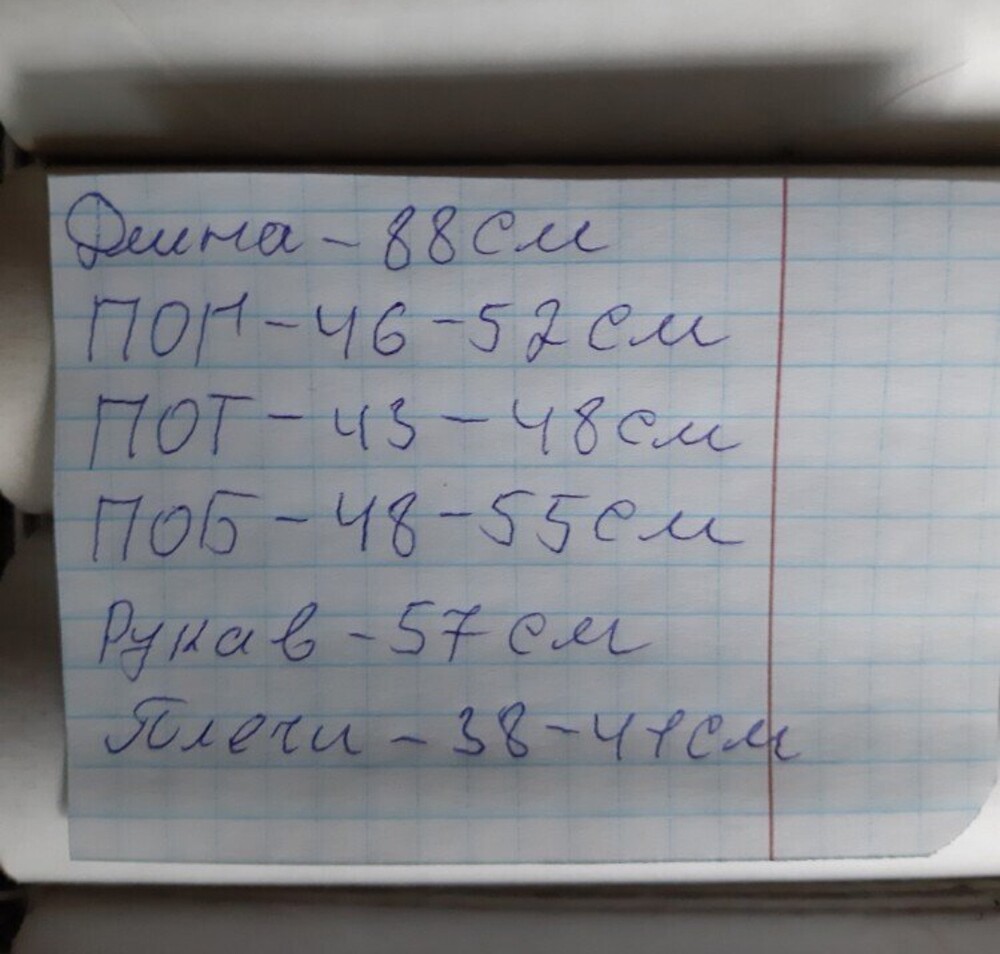 Длина - 88 см
ПОГ - 46 - 52 см
ПОТ - 43 - 48 см
ПОБ - 48 - 55 см
Рукав - 57 см
Плечи - 38 - 41 см